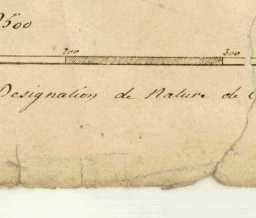 2500
200 300
Designation de Nature de